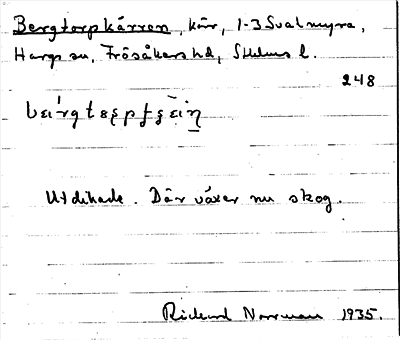 Bergtorpkärren, kärr, 1-3 Svalmyra,
Hargs sn, Frösåkers hd, Sthlms l.
248
Utdikade. Där växer nu skog.
Rickard Norrman 1935.